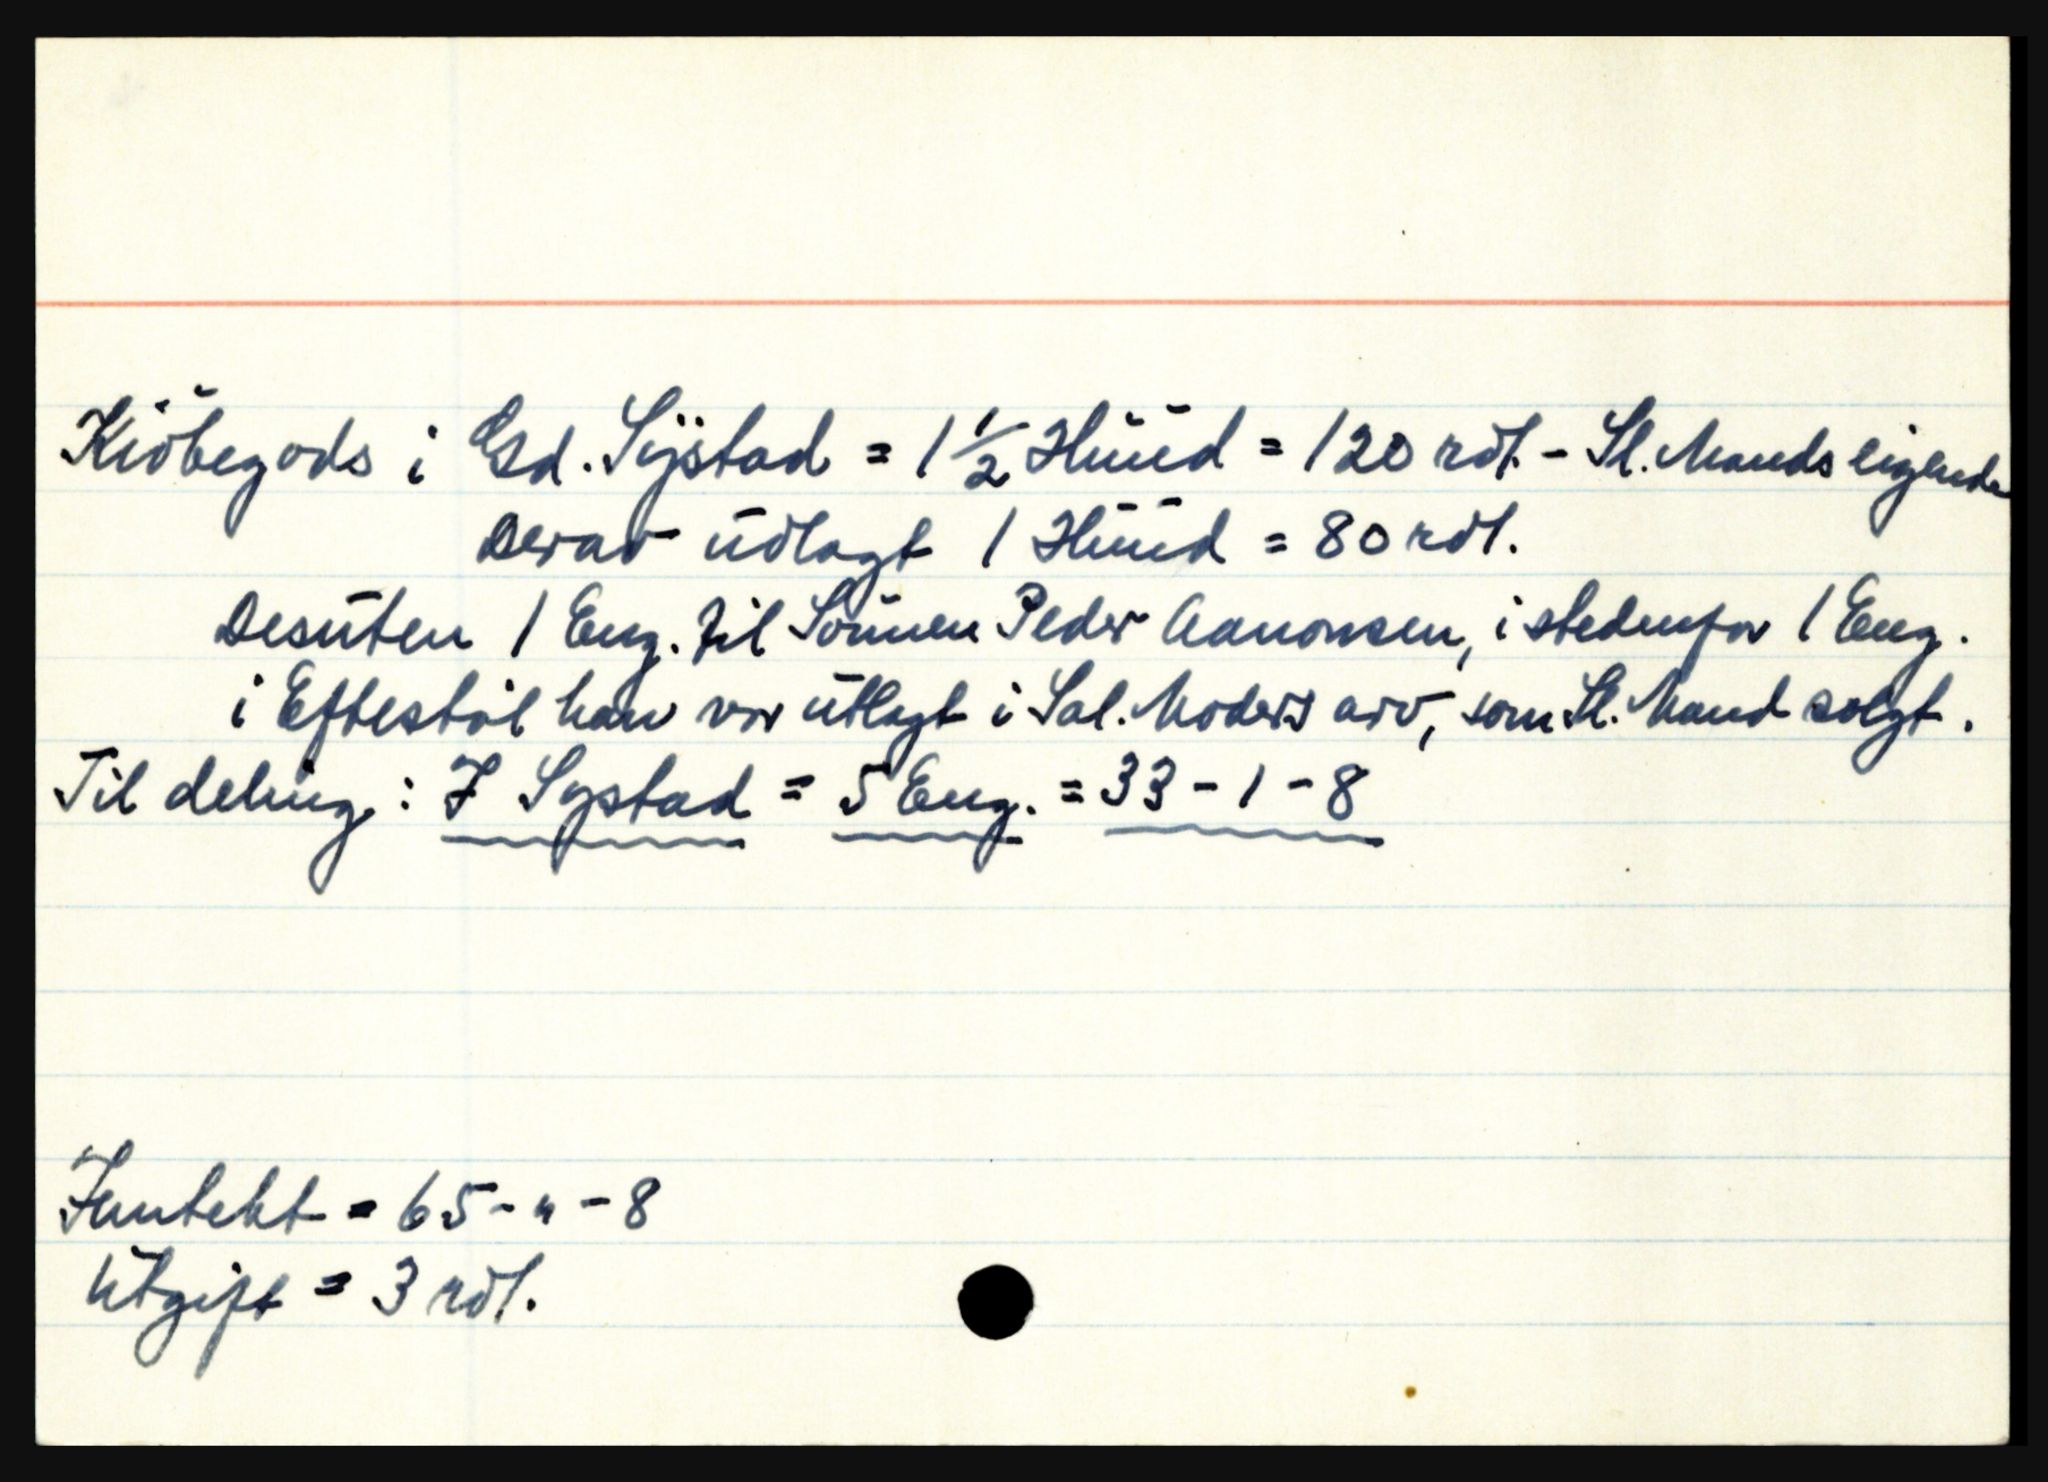 Kiöbegods i Gd. Sÿstad = 1 1/2 Huud = 120 rdl. - Sl. Mands eigende
Derav udlagt 1 Huud = 80 rdl.
Desuten 1 Eng. til Sönnen Peder Aanonsen, i stedenfor 1 Eng.
i Eftestöl han var utlagt i Sal. Moders arv, som Sl. Mand solgt.
Til deling: I Systad = 5 Eng. = 33 - 1 - 8
Inntekt = 65 - " - 8
Utgift = 3 rdl.